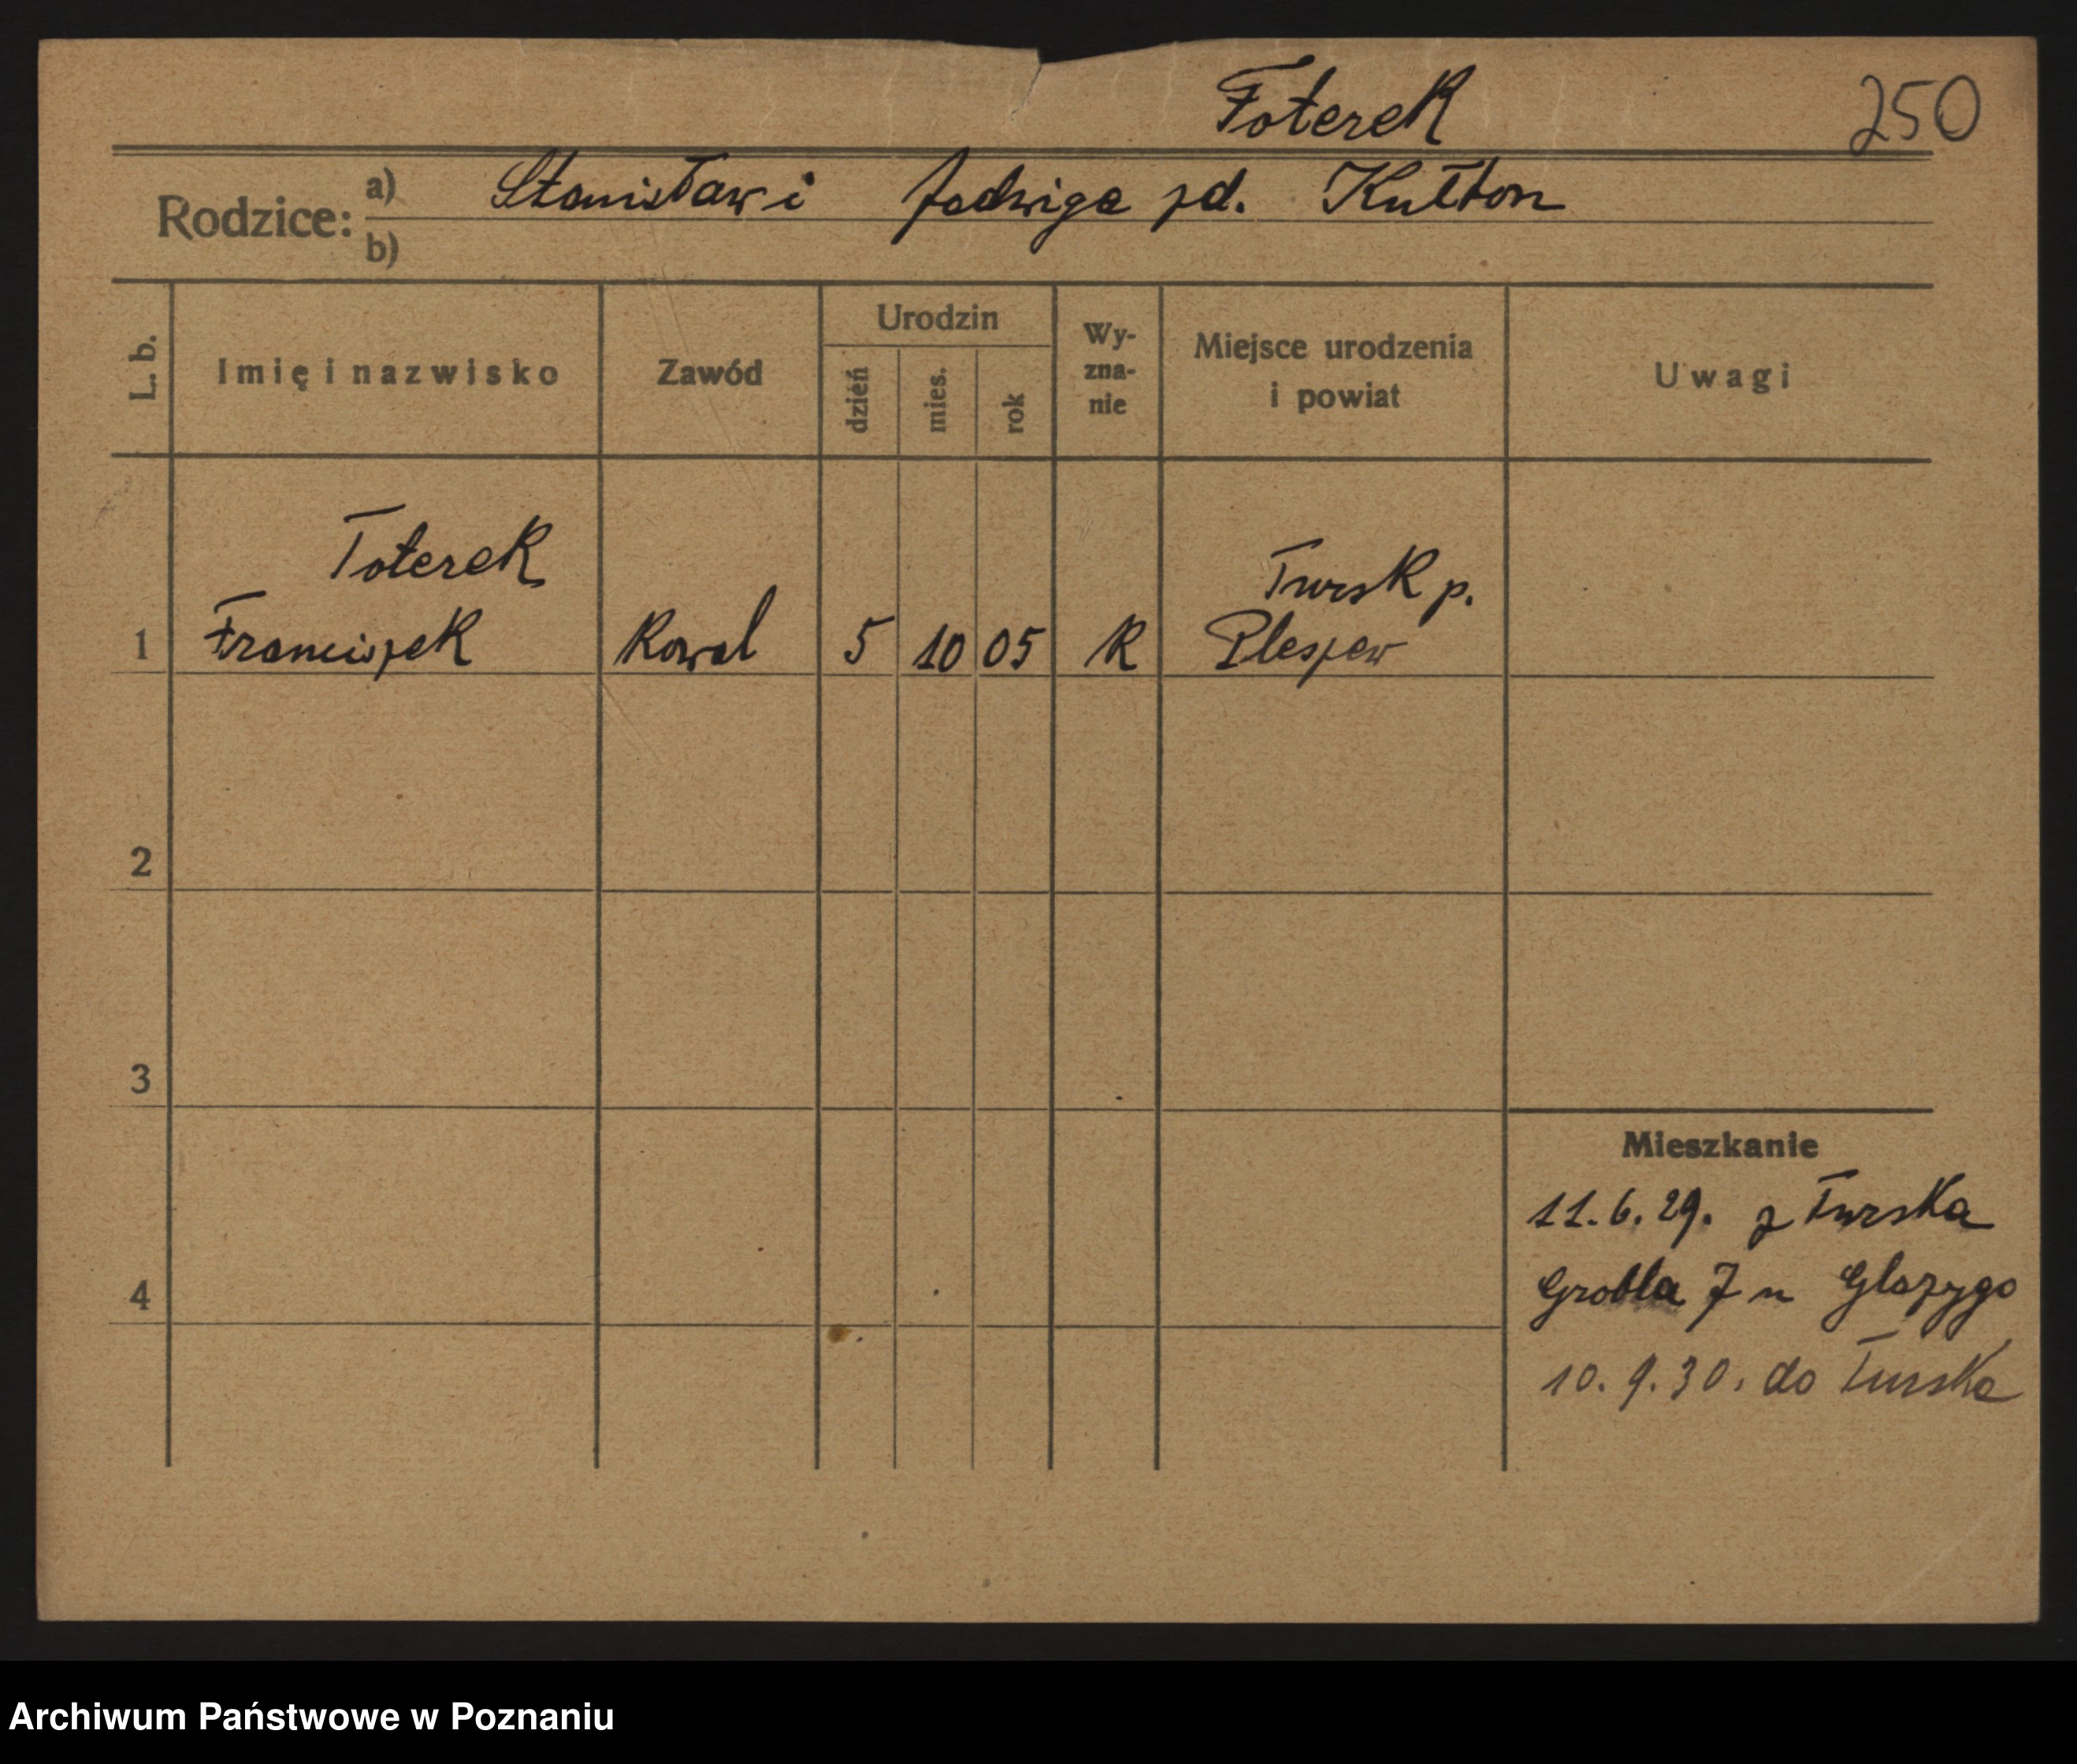 Foterek 250
Rodzice: a) Stanisław i Jadwiga zd. Kułton
b)
L. b. Imię i nazwisko Zawód Urodzin dzień mies. rok Wy-zna-nie Miejsce urodzenia i powiat Uwagi
Foterek Tursk p.
1 Franciszek Kowal 5 10 05 R Pleszew
2
3
Mieszkanie
11.6.29. z Turska
4 Grobla 7 u Glazygo
10.9.30. do Turska
Archiwum Państwowe w Poznaniu